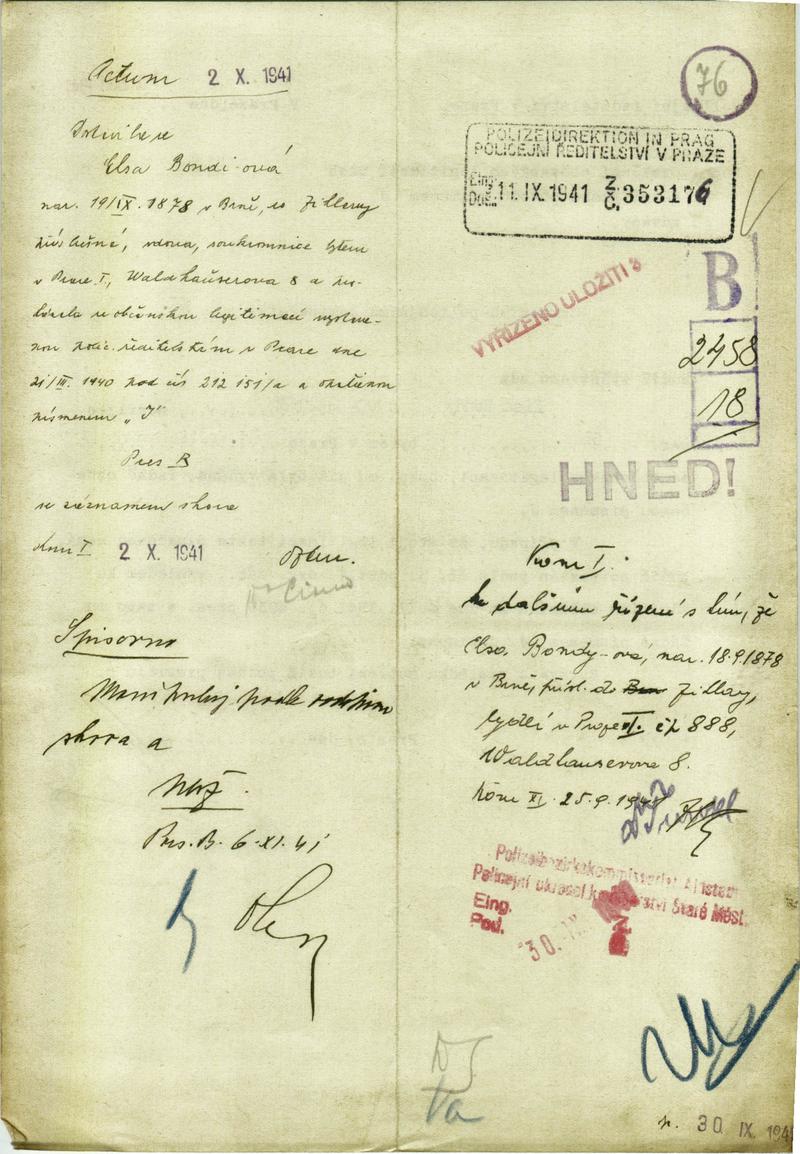 Actum 2 X. 1941
Dostavila se
Elsa Bondi-ová
nar. 19/IX. 1878 v Brně, do Jihlavy
příslušná, vdova, soukromnice bytem
v Praze I, Waldhauserova 8 a
občanskou legitimací
polic. ředitelstvím v Praze dne
21/III. 1940 pod čís 212 151/a a
písmenem „J"
Pres B
se záznamem shora
kom I 2 X. 1941
Spisovna
podle
shora a
Pres. B. 6-XI. 41
76
POLIZEIDIREKTION IN PRAG
POLICEJNÍ ŘEDITELSTVÍ V PRAZE
Eing.
Doš. 11. IX. 1941 Z. Č. 353176
VYŘÍZENO ULOŽITI 3
B
2458
18
HNED!
Kom I.
k dalšímu řízení s tím, že
Elsa Bondy-ová, nar. 18.9.1878
v Brně, přísl. do Jihlavy,
bydlí v Praze I. čp 888,
Waldhauserova 8.
Kom XI. 25.9.1941
Polizeibezirkskommissariat Altstadt
Policejní okresní komisařství Staré Měst.
Eing.
Pod.
30.
30 IX. 194